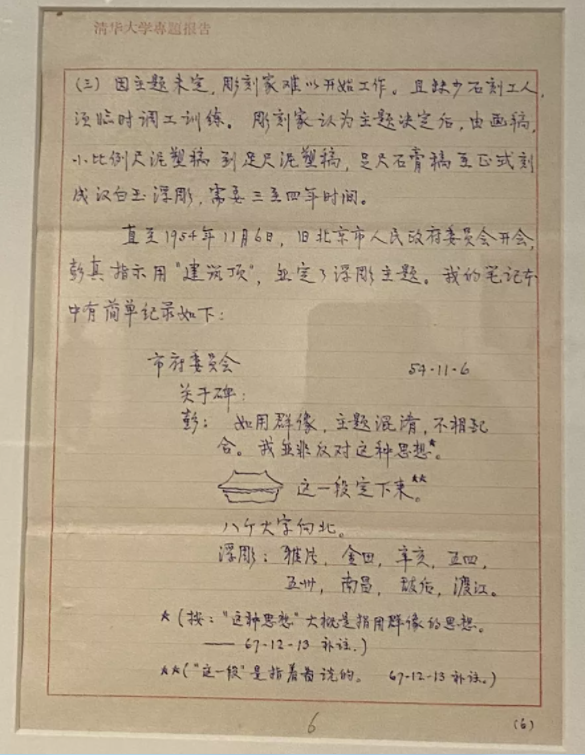 清华大学專題报告
(三) 因主题未定，彫刻家难以开始工作。且缺少石刻工人，
须临时调工训练。 彫刻家认为主题决定后，由画稿，
小比例尺泥塑稿到足尺泥塑稿，足尺石膏稿至正式刻
成汉白玉浮彫，需要三至四年时间。
直至1954年11月6日，旧北京市人民政府委员会开会，
彭真指示用“建筑顶”，並定了浮彫主题。我的笔记本
中有简单纪录如下：
市府委员会 54-11-6
关于碑：
彭： 如用群像，主题混淆，不相配
合。我並非反对这种思想*。
这一段定下来**。
八个大字向北。
浮彫：鸦片，金田，辛亥，五四，
五卅，南昌，敌后，渡江。
*(按：“这种思想”大概是指用群像的思想。
—— 67-12-13 补注.)
**(“这一段”是指着 说的。 67-12-13 补注.)
6 (6)